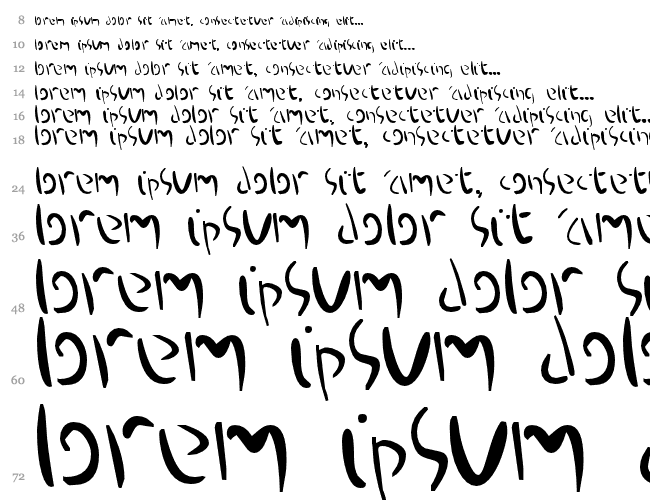 8 lorem ipsum dolor sit amet, consectetuer adipiscing elit...
10 lorem ipsum dolor sit amet, consectetuer adipiscing elit...
12 lorem ipsum dolor sit amet, consectetuer adipiscing elit...
14 lorem ipsum dolor sit amet, consectetuer adipiscing elit...
16 lorem ipsum dolor sit amet, consectetuer adipiscing elit..
18 lorem ipsum dolor sit amet, consectetuer adipiscing
24 lorem ipsum dolor sit amet, consectet
36 lorem ipsum dolor sit ame
48 lorem ipsum dolor s
60 lorem ipsum dol
72 lorem ipsum